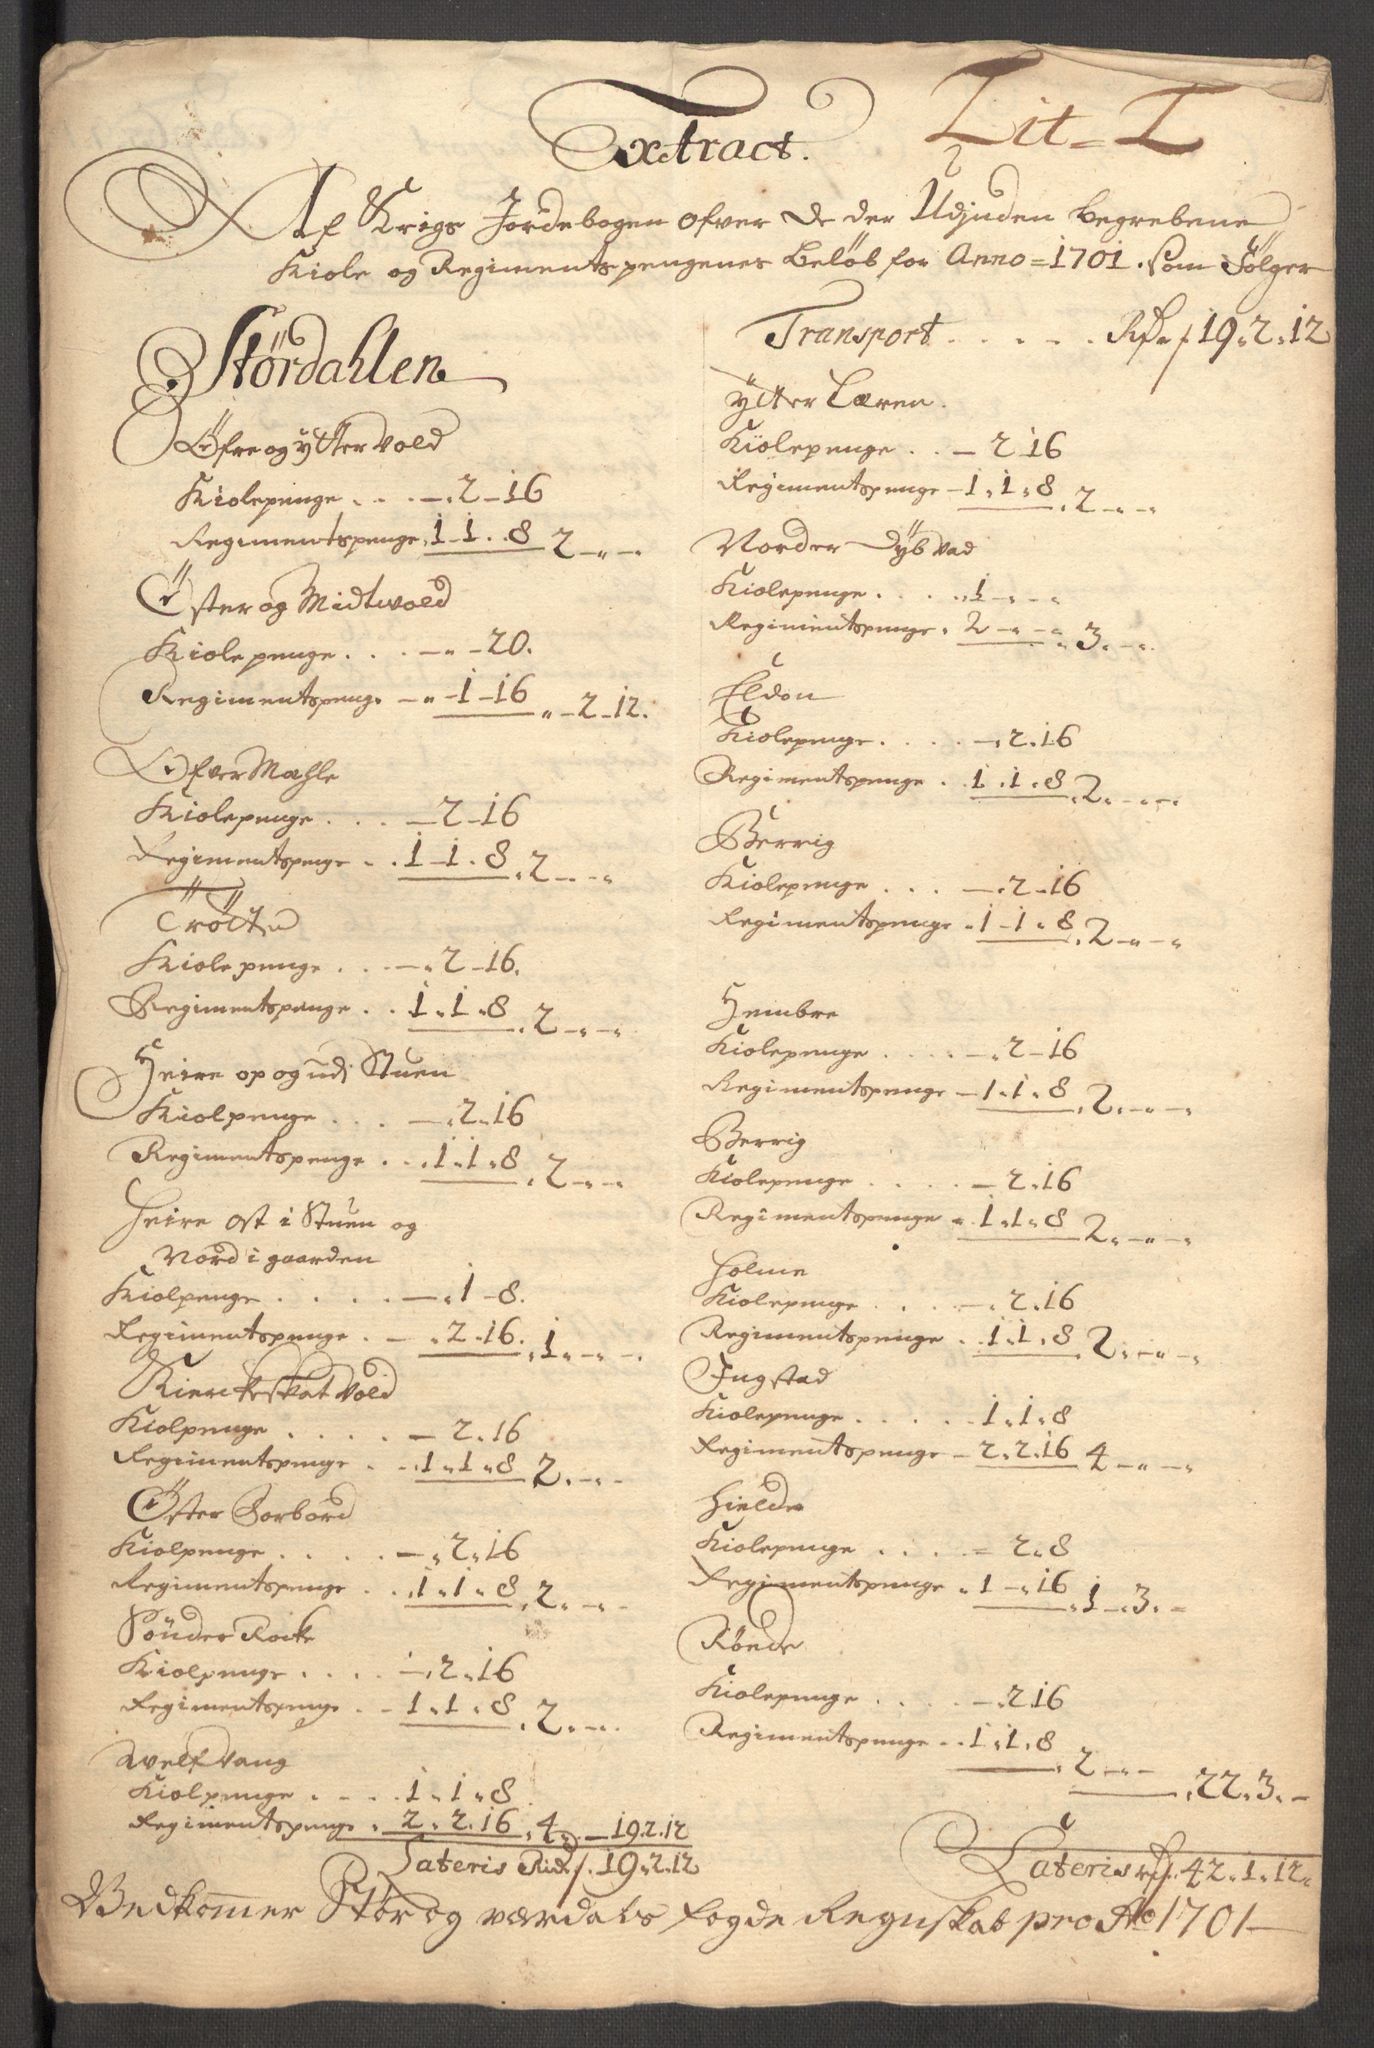 Lit= I
Extract.
Af Krigs Jordebogen ofver de der Udjnden begrebene
Kiole og Regimentspengenes beløb for Anno=1701. som Følger
Størdahlen
Öfre og ytter vold
Kiolepenge . . . — . 2 – 16
Regimentspenge . 1 – 1 . . 8 2 – „ – .
Öster og Midtvold
Kiolepenge . . . – „ – 20.
Regimentspenge – „ – 1 – 16 „ – 2 – 12.
Öfver Mæhle
Kiolepenge . . . — 2 – 16
Regimentspenge . . 1 – 1 . 8 . 2 – . – .
Tröite
Kiolepenge . . . — . 2 – 16.
Regimentspenge . . 1 . 1 . 8 . 2 – „ – „
Heire op og udj Stuen
Kiolpenge . . . — . 2 . 16
Regimentspenge . . . 1 . 1 . 8 . 2 – „ – „
Heire ost i Stuen og
Nord i gaarden
Kiolpenge . . . . — . 1 – 8.
Regimentspenge . — . 2 . 16. . 1 . – „ – .
Kierckeskat vold
Kiolpenge . . . . — 2 . 16
Regimentspenge . . . 1 . 1 . 8 2 . – . –
Öster Forbord
Kiolpenge . . . . — . 2 . 16
Regimentspenge . . . 1 . 1 . 8 . 2 . – . –
Sönder Rocke
Kiolpenge . . . . – . 2 . 16
Regimentspenge . . 1 . 1 . 8 . 2 . – .
Welfvang
Kiolpenge . . . . 1 . 1 . 8
Regimentspenge . 2 . 2 . 16 . 4 . — 19 . 2 . 12
Lateris Rdr f. 19 . 2 . 12
Transport . . . . . Rdr f 19 . 2 . 12
ytter Læren.
Kiolepenge . . — 2 16
Regimentspenge – 1 . 1 . 8 . 2 – „ – „
Norder Dybvad
Kiolepenge . . . . . 1 – . – „
Regimentspenge . 2 – „ – „ . 3 . – „ .
Eldon
Kiolepenge . . . . – . 2 . 16
Regimentspenge . . 1 . 1 . 8 . 2 . – „ – .
Berrig
Kiolepenge . . . — . 2 – 16
Regimentspenge . 1 – 1 . 8 . 2 – „ – „
Heimbre
Kiolepenge . . . . – . 2 – 16
Regimentspenge – 1 . 1 . 8 . 2 . – „ – .
Berrig
Kiolepenge . . . . — 2 . 16
Regimentspenge . 1 . 1 . 8 2 . – „ – .
Holme
Kiolepenge . . . . – . 2 . 16
Regimentspenge . 1 . 1 . 8 2 . – „ – .
Ingstad
Kiolepenge . . . . . 1 . 1 . 8
Regimentspenge – 2 . 2 . 16 4 – „ – .
Hielde
Kiolepenge . . . . = 2 . 8
Regimentspenge . 1 – . 16 . 1 – . 3 . –
Rönde
Kiolepenge . . . . – . 2 16
Regimentspenge . . 1 . 1 . 8 . 2 – „ –
. 22 . 3 . –
Lateris rf. 42 . 1 . 12 .
Vedkommer Stör og værdals fogde Regnskab pro Ao 1701 –